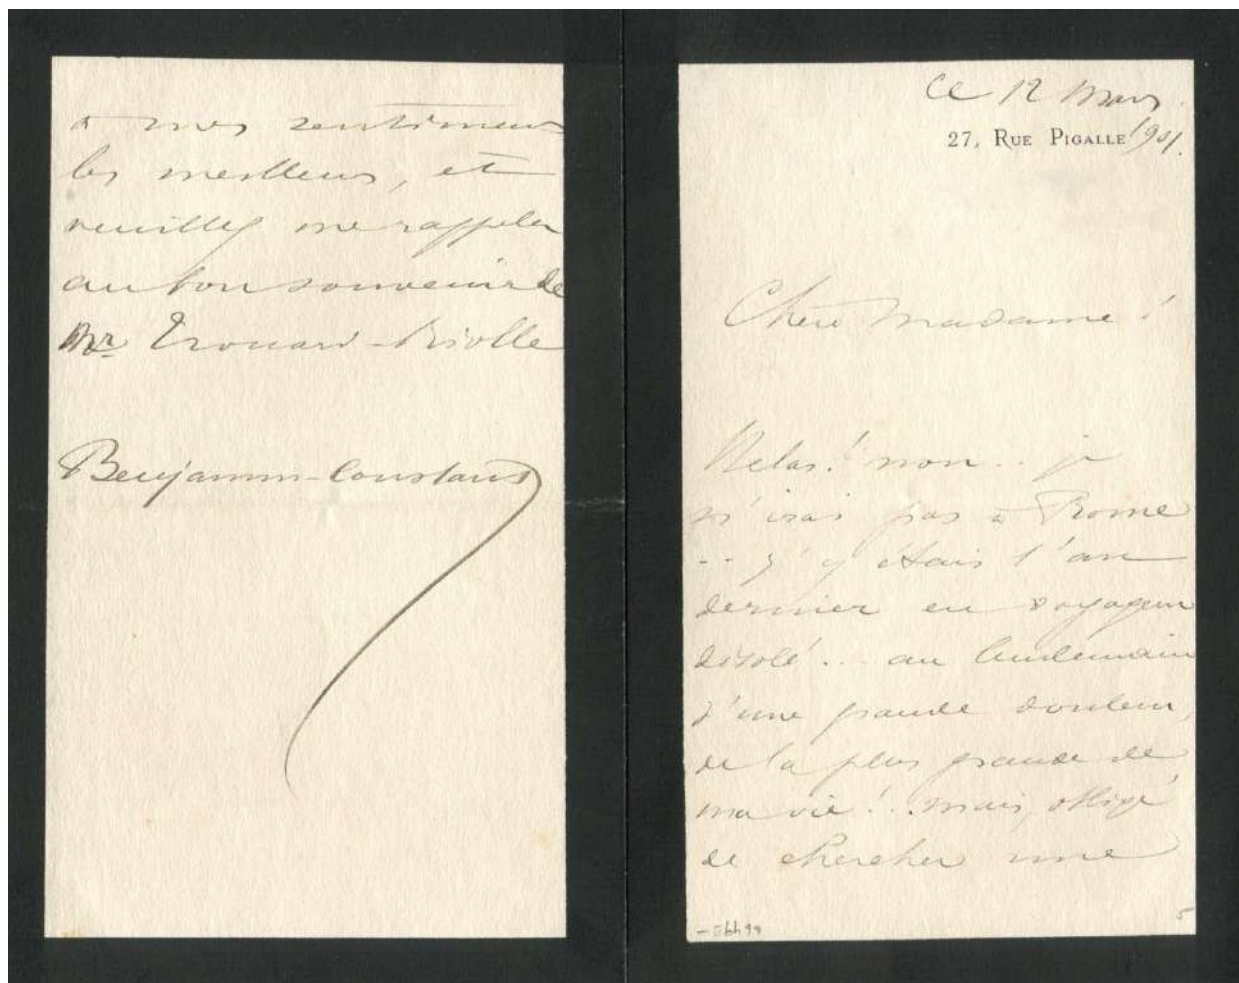 à nos sentiments
les meilleurs, et
veuillez me rappeler
au bon souvenir de
Mr Trouard-Riolle
Benjamin-Constant
Ce 12 Mars
1901.
27, RUE PIGALLE
Chère Madame !
Hélas ! non... je
n'irai pas à Rome
.. j'y étais l'an
dernier en voyageur
désolé... au lendemain
d'une grande douleur,
de la plus grande de
ma vie ! .. mais, obligé
de chercher une
5